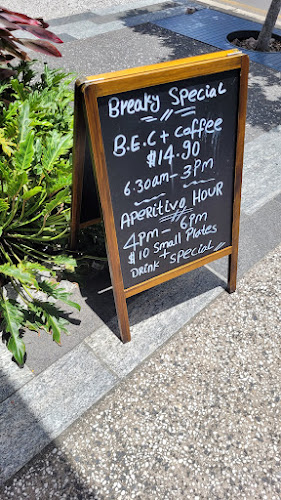 Breaky Special
B.E.C + Coffee
$14.90
6.30am - 3pm
APERITIVO HOUR
4pm - 6pm
$10 Small Plates
+
DRINK Special